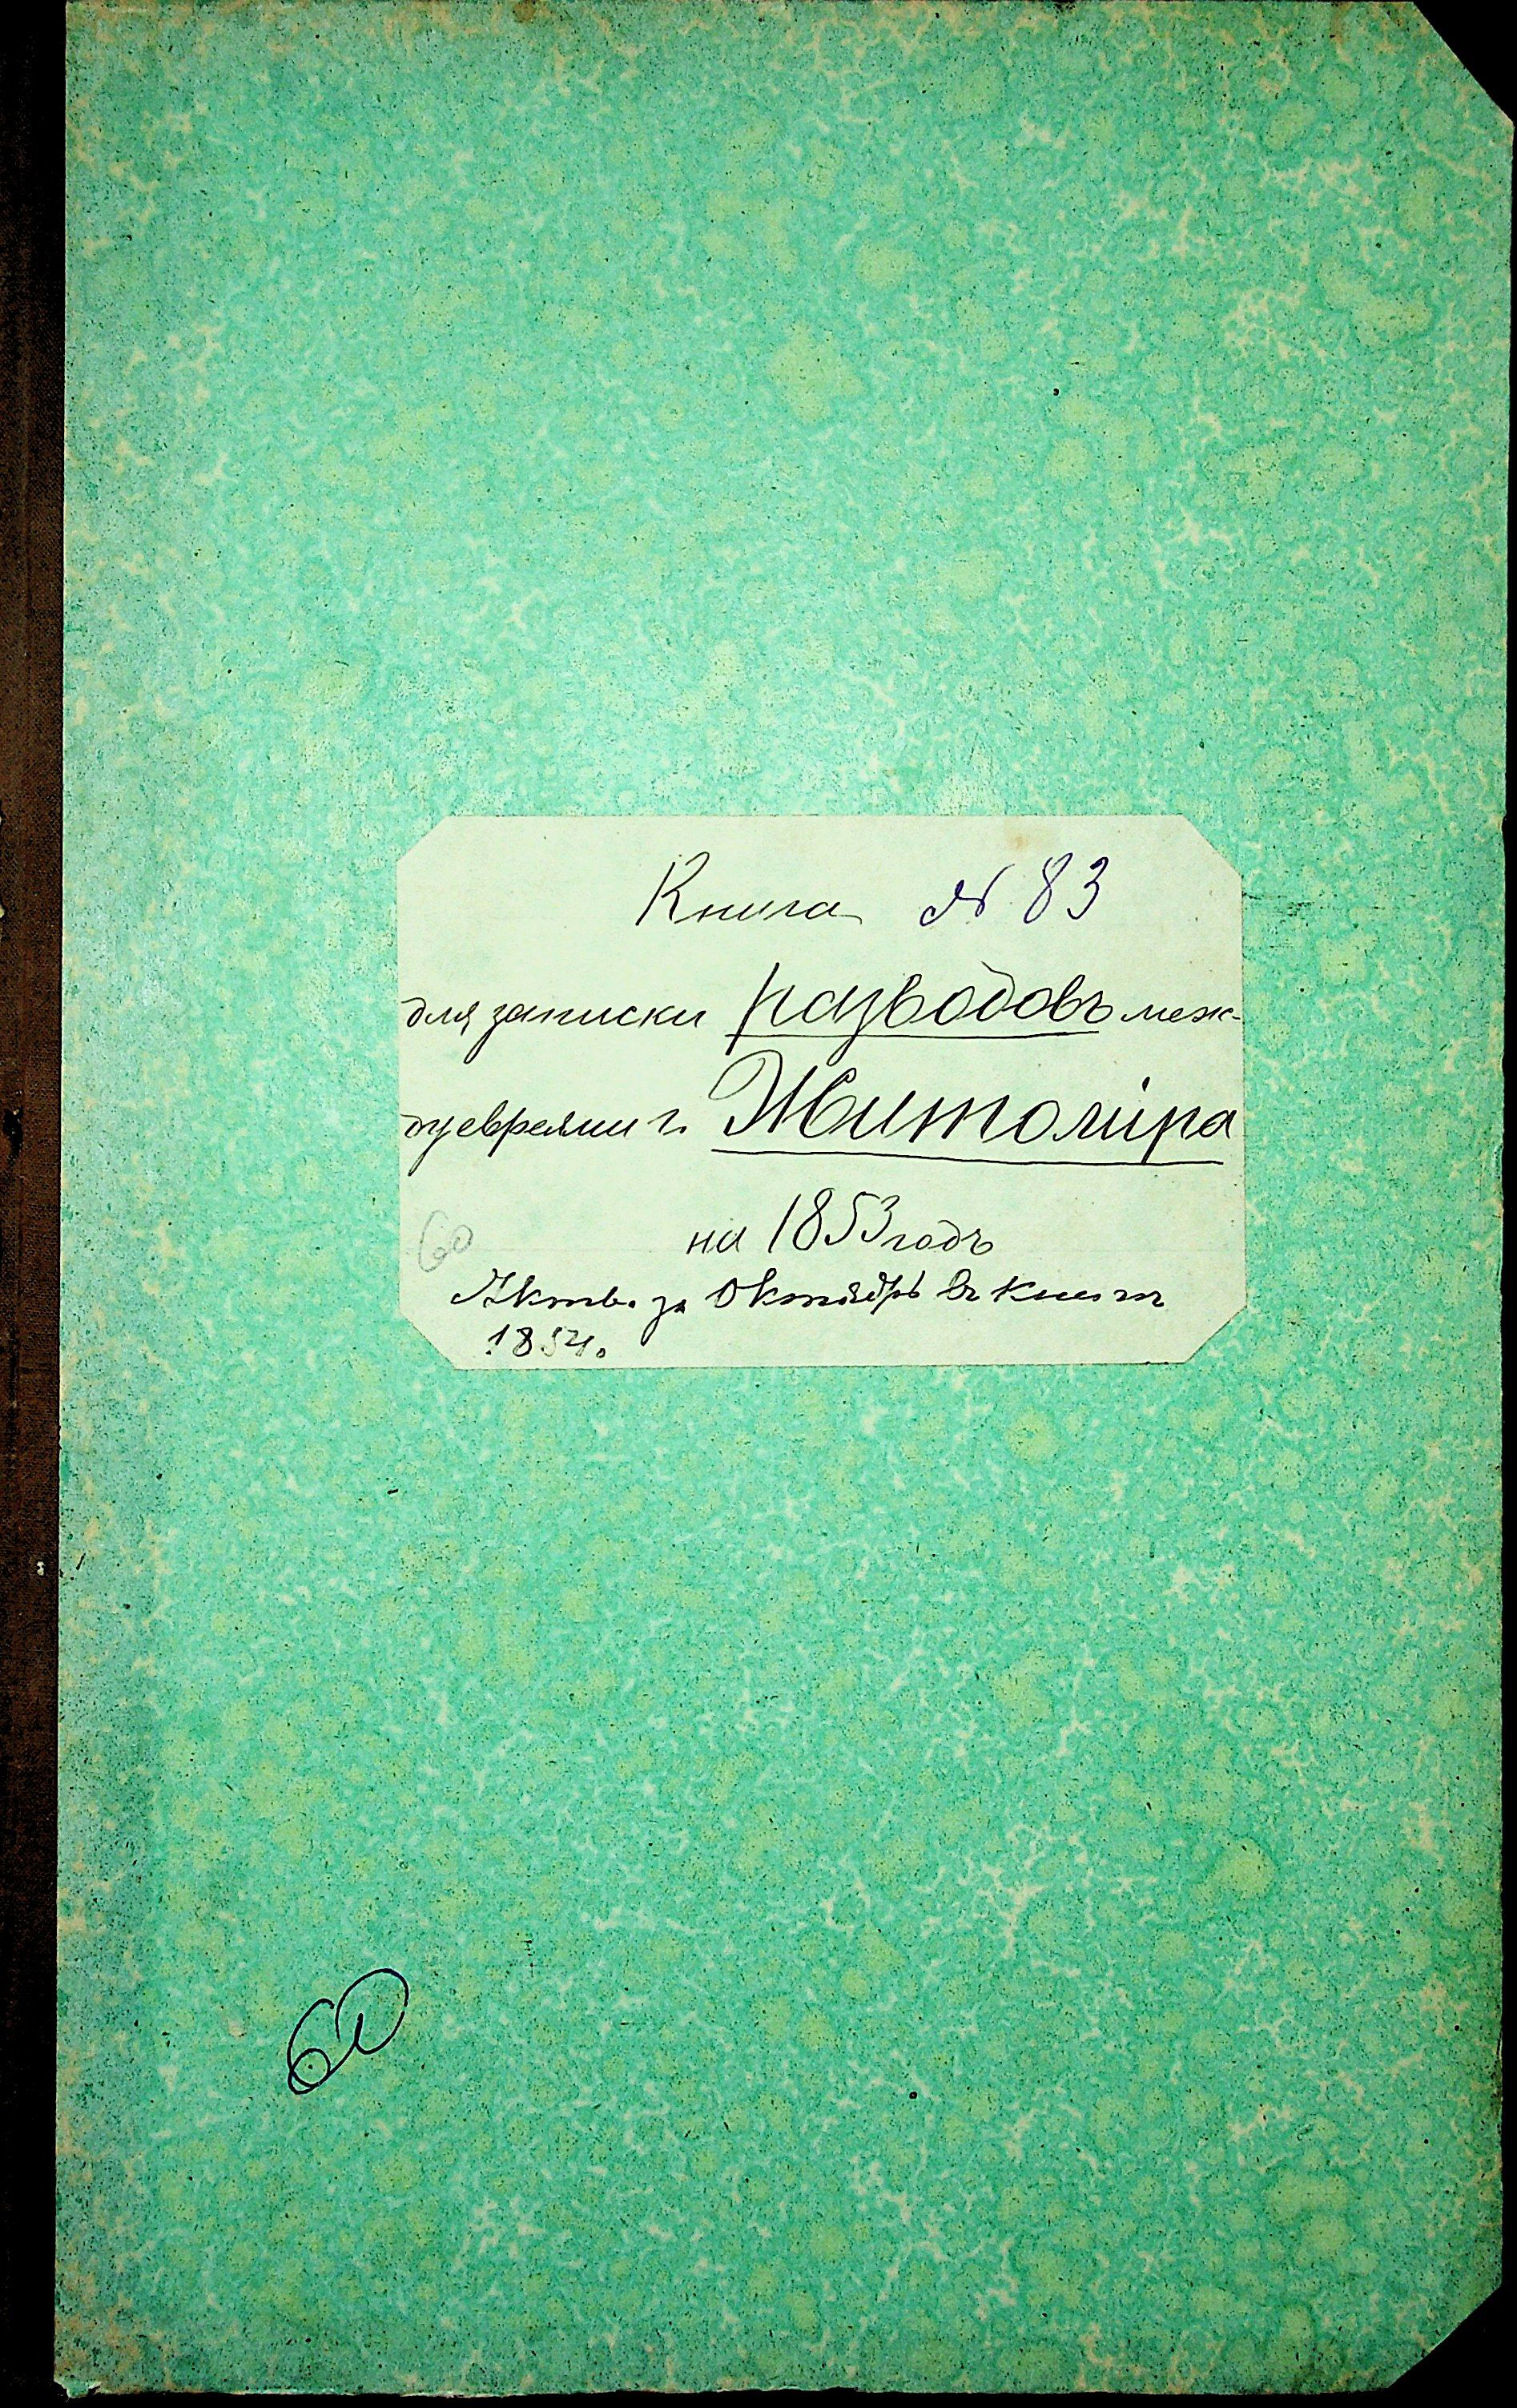 Книга № 83
для записки разводовъ меж-
ду евреями г. Житоміра
на 1853 годъ
60
Актъ. за Октябрь въ книгѣ
1854.
60